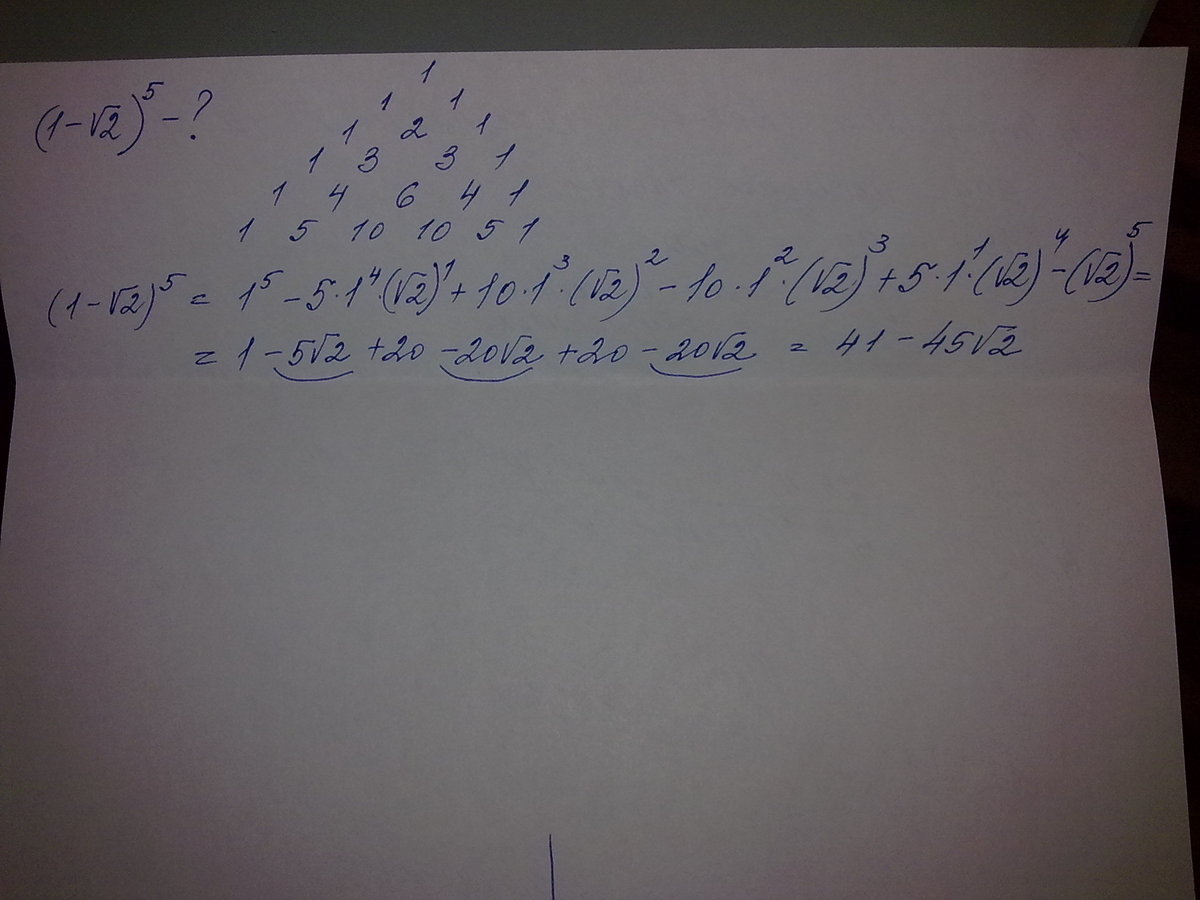 (1-√2)⁵ - ?
1
1 1
1 2 1
1 3 3 1
1 4 6 4 1
1 5 10 10 5 1
(1-√2)⁵ = 1⁵ - 5·1⁴·(√2)¹ + 10·1³·(√2)² - 10·1²·(√2)³ + 5·1¹·(√2)⁴ - (√2)⁵ =
= 1 - 5√2 + 20 - 20√2 + 20 - 20√2 = 41 - 45√2